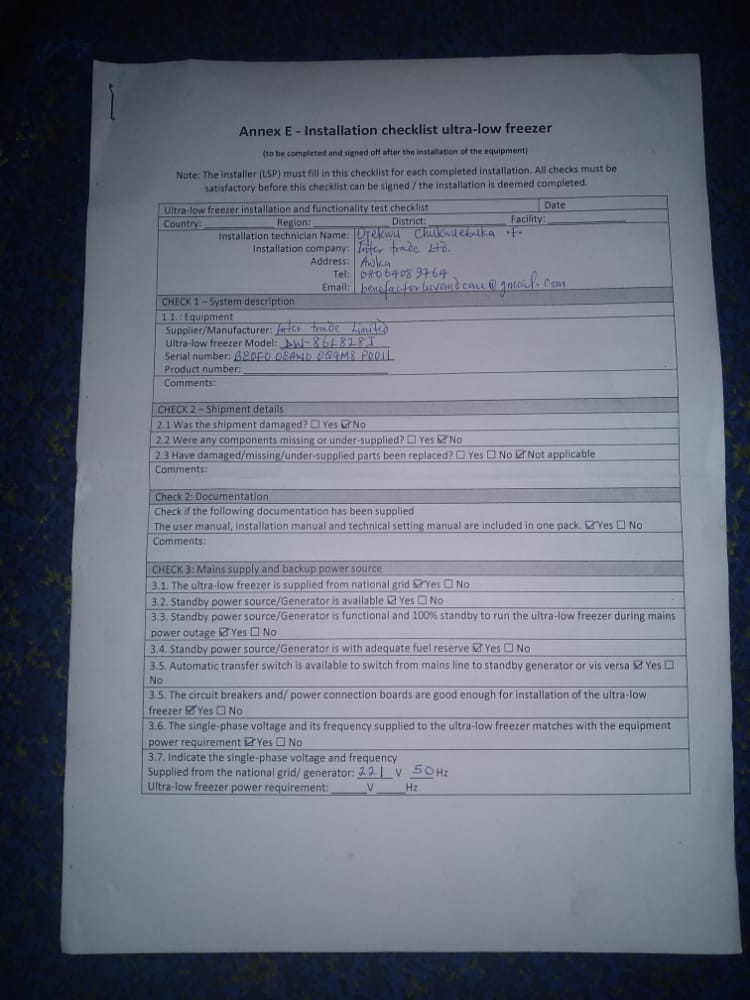 Annex E - Installation checklist ultra-low freezer
(to be completed and signed off after the installation of the equipment)
Note: The installer (LSP) must fill in this checklist for each completed installation. All checks must be
satisfactory before this checklist can be signed / the installation is deemed completed.
Ultra-low freezer installation and functionality test checklist Date
Country: Region: District: Facility:
Installation technician Name: Ojekwu Chukwuebuka
Installation company: Inter trade Ltd.
Address: Awka
Tel: 08064089764
Email: @gmail.com
CHECK 1 – System description
1.1. : Equipment
Supplier/Manufacturer: Inter trade Limited
Ultra-low freezer Model: DW-86L828J
Serial number: BEOFD OEAND
Product number:
Comments:
CHECK 2 – Shipment details
2.1 Was the shipment damaged? ☐ Yes ☑ No
2.2 Were any components missing or under-supplied? ☐ Yes ☑ No
2.3 Have damaged/missing/under-supplied parts been replaced? ☐ Yes ☐ No ☑ Not applicable
Comments:
Check 2: Documentation
Check if the following documentation has been supplied
The user manual, installation manual and technical setting manual are included in one pack. ☑ Yes ☐ No
Comments:
CHECK 3: Mains supply and backup power source
3.1. The ultra-low freezer is supplied from national grid ☑ Yes ☐ No
3.2. Standby power source/Generator is available ☑ Yes ☐ No
3.3. Standby power source/Generator is functional and 100% standby to run the ultra-low freezer during mains
power outage ☑ Yes ☐ No
3.4. Standby power source/Generator is with adequate fuel reserve ☑ Yes ☐ No
3.5. Automatic transfer switch is available to switch from mains line to standby generator or vis versa ☑ Yes ☐
No
3.5. The circuit breakers and/ power connection boards are good enough for installation of the ultra-low
freezer ☑ Yes ☐ No
3.6. The single-phase voltage and its frequency supplied to the ultra-low freezer matches with the equipment
power requirement ☑ Yes ☐ No
3.7. Indicate the single-phase voltage and frequency
Supplied from the national grid/ generator: 221 V 50 Hz
Ultra-low freezer power requirement: V Hz